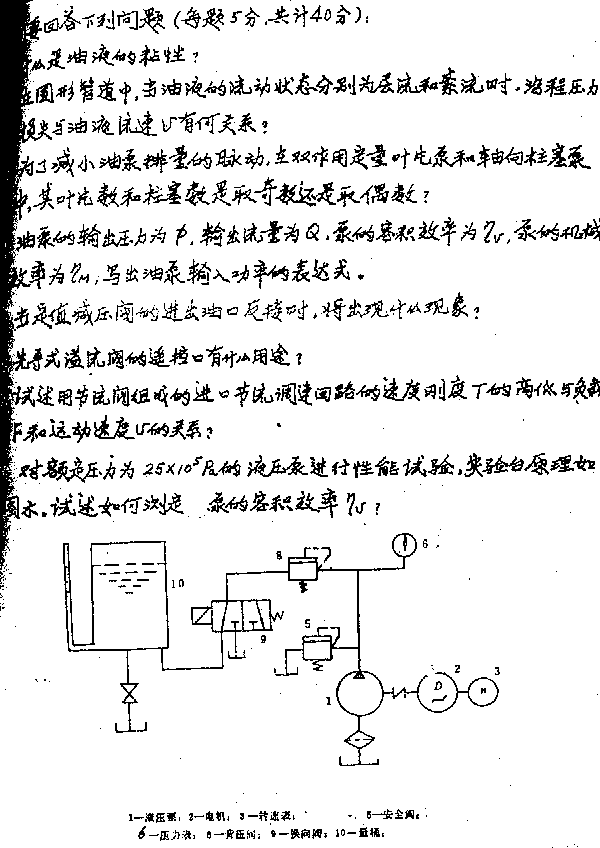 要回答下列问题(每题5分,共计40分):
什么是油液的粘性?
在圆形管道中,当油液的流动状态分别为层流和紊流时,沿程压力
损失与油液流速υ有何关系?
为了减小油泵排量的脉动,在双作用定量叶片泵和轴向柱塞泵
中,其叶片数和柱塞数是取奇数还是取偶数?
油泵的输出压力为P,输出流量为Q,泵的容积效率为ηv,泵的机械
效率为ηM,写出油泵输入功率的表达式。
当定值减压阀的进出油口反接时,将出现什么现象?
先导式溢流阀的遥控口有什么用途?
试述用节流阀组成的进口节流调速回路的速度刚度T的高低与负载
F和运动速度υ的关系?
对额定压力为25×10⁵Pa的液压泵进行性能试验,实验台原理如
图示。试述如何测定 泵的容积效率ηv?
8
6
10
9
5
1
2
3
D
M
1—液压泵; 2—电机; 3—转速表; 5—安全阀;
6—压力表; 8—背压阀; 9—换向阀; 10—量桶;